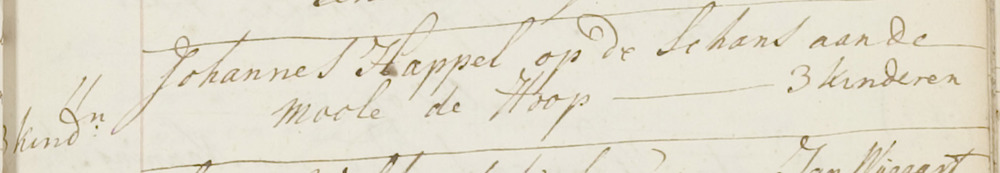 Johannes Happel op de Schans aan de
moole de Hoop — 3 kinderen
3 kindn:
Jan Wiggart